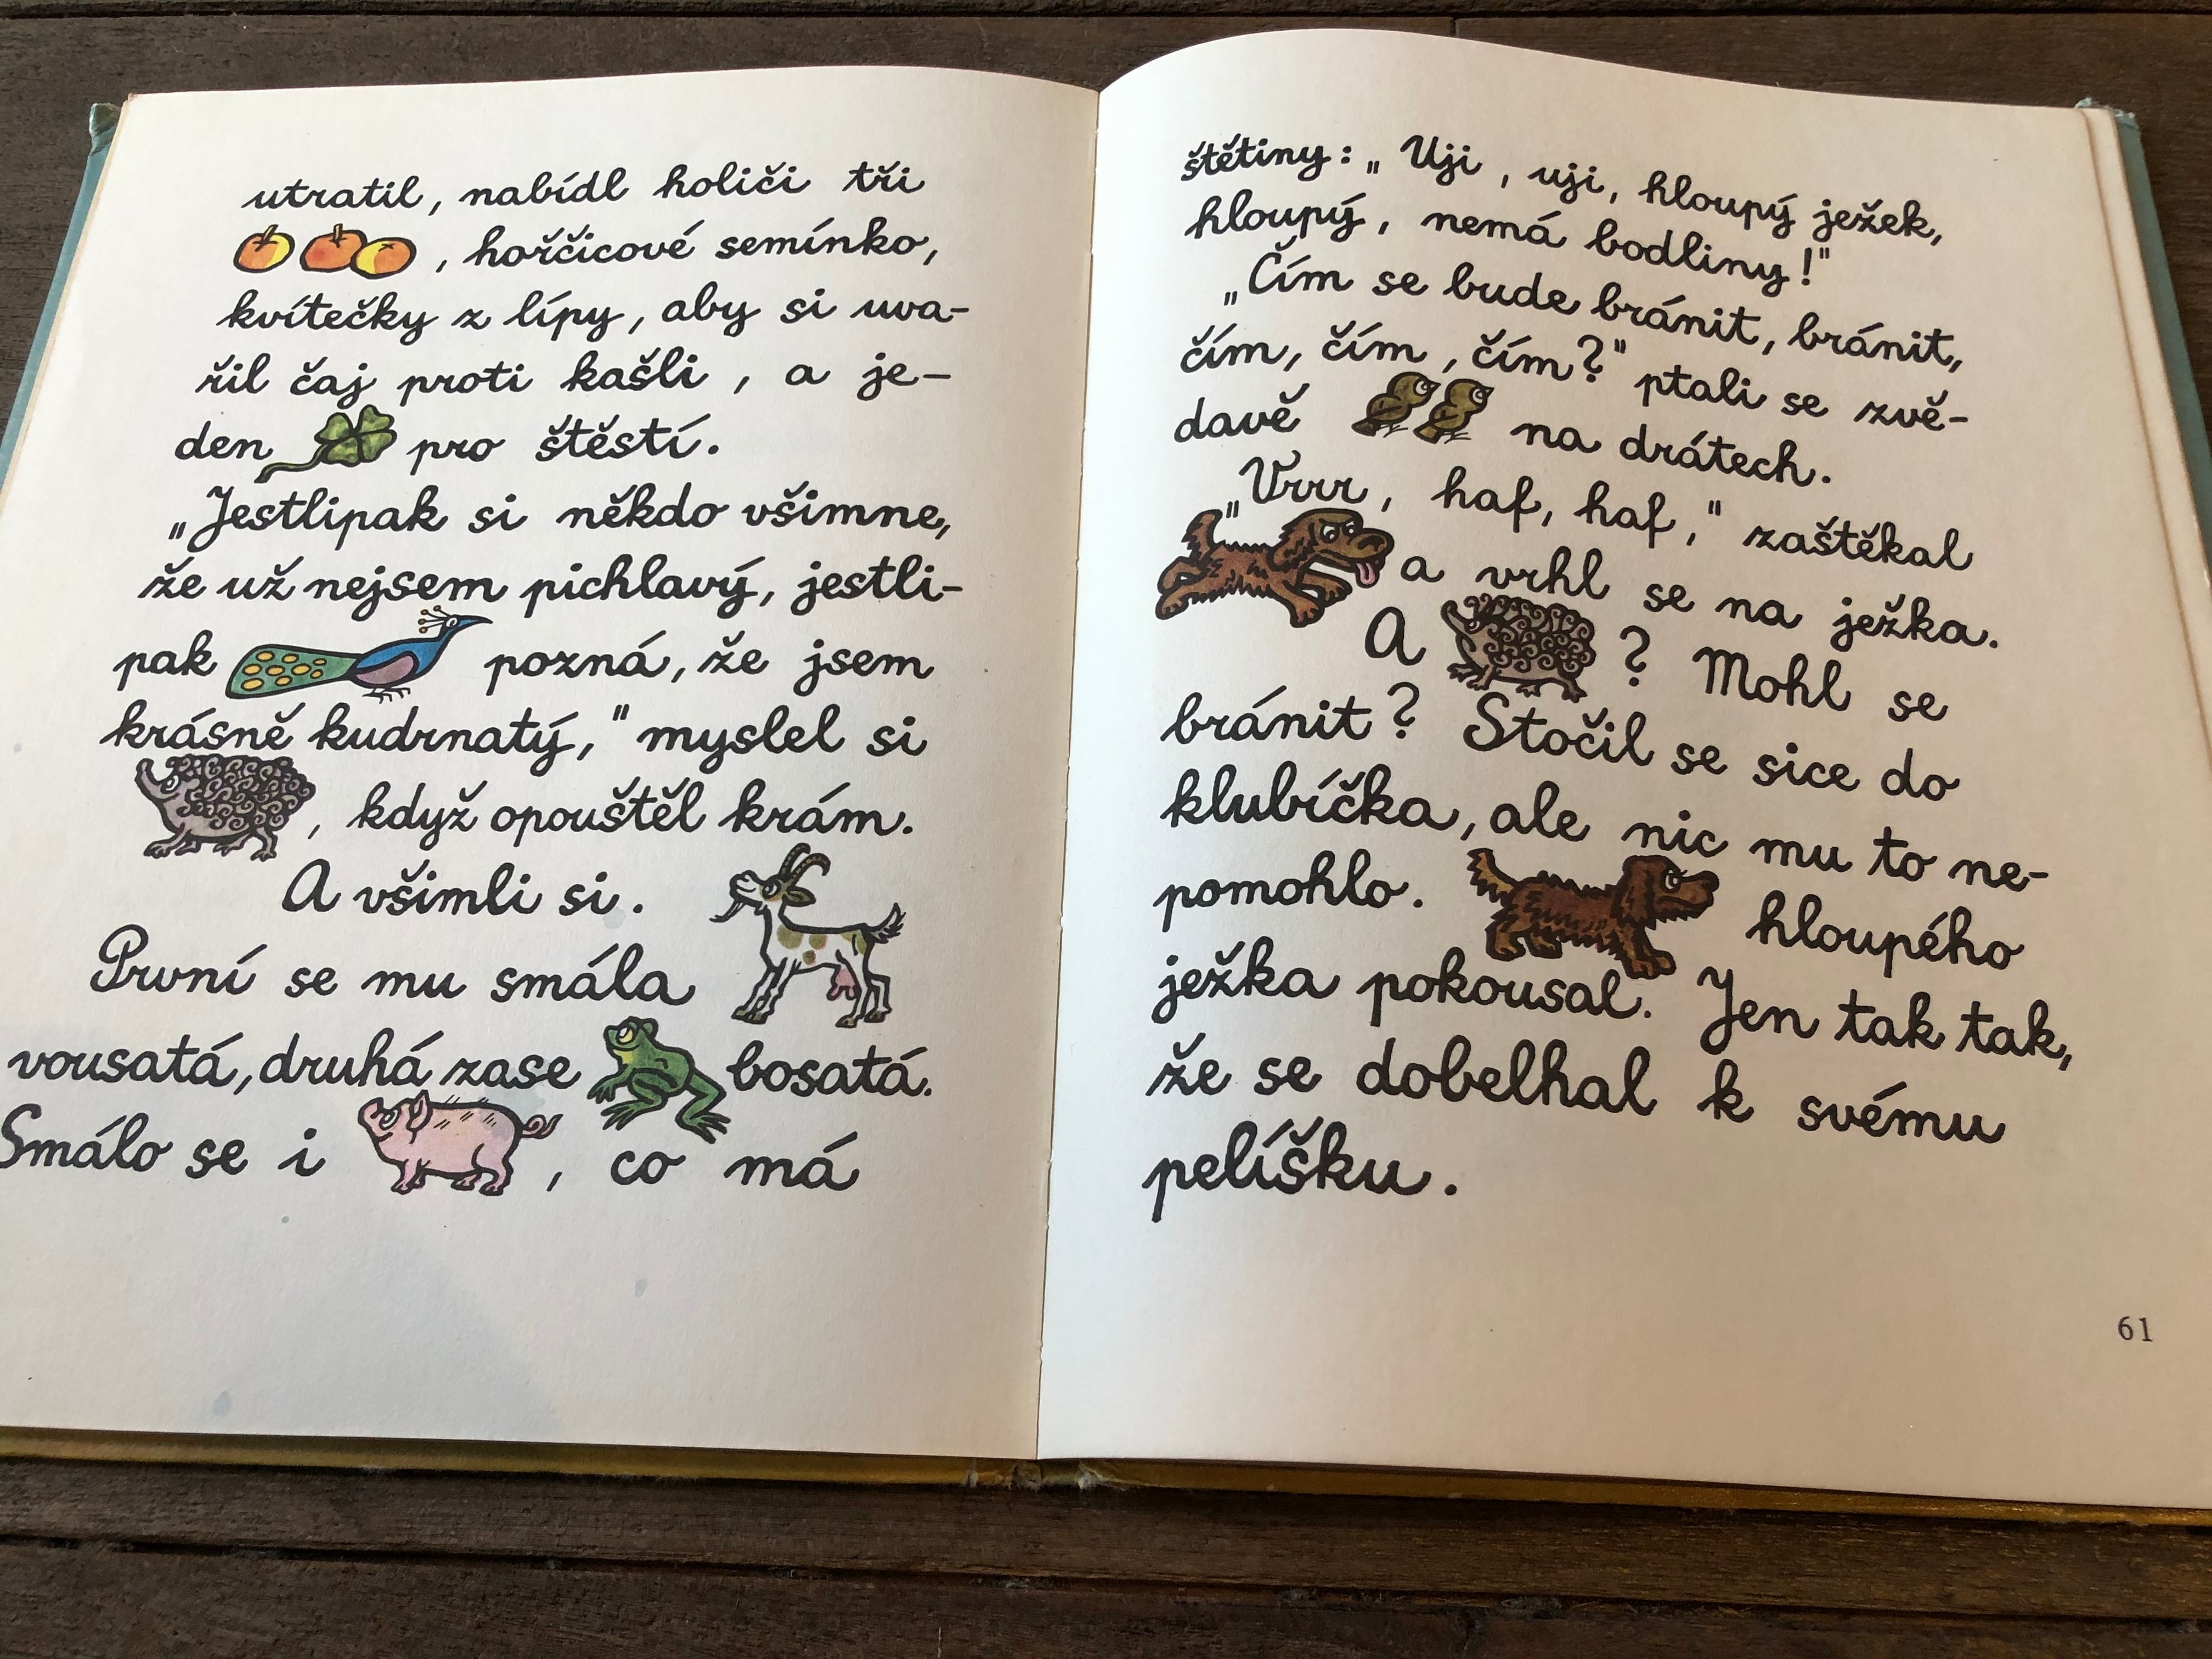 utratil, nabídl holiči tři
, hořčicové semínko,
kvítečky z lípy, aby si uva-
řil čaj proti kašli, a je-
den pro štěstí.
„Jestlipak si někdo všimne,
že už nejsem pichlavý, jestli-
pak pozná, že jsem
krásně kudrnatý," myslel si
, když opouštěl krám.
A všimli si.
První se mu smála
vousatá, druhá zase bosatá.
Smálo se i , co má
štětiny: „Uji, uji, hloupý ježek,
hloupý, nemá bodliny!"
„Čím se bude bránit, bránit,
čím, čím, čím?" ptali se zvě-
davě na drátech.
„Vrrr, haf, haf," zaštěkal
a vrhl se na ježka.
A ? Mohl se
bránit? Stočil se sice do
klubíčka, ale nic mu to ne-
pomohlo. hloupého
ježka pokousal. Jen tak tak,
že se dobelhal k svému
pelíšku.
61